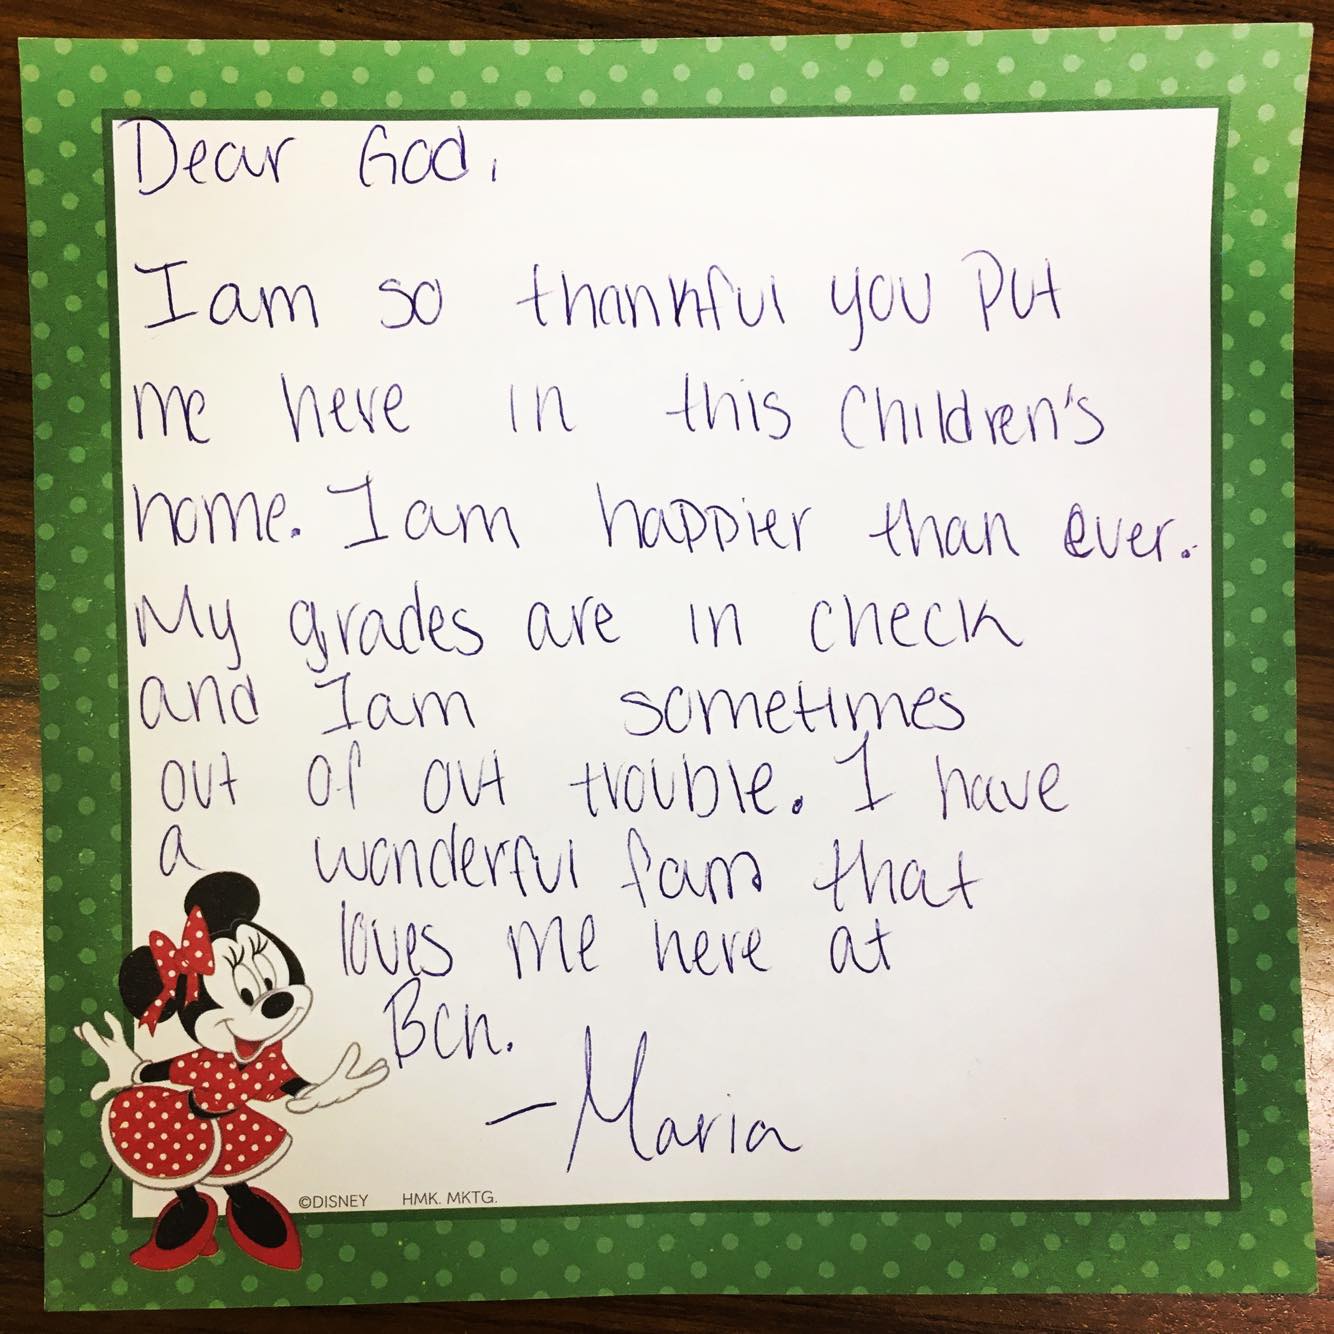 Dear God,
I am so thankful you put
me here in this children's
home. I am happier than ever.
My grades are in check
and I am sometimes
out of out trouble. I have
a wonderful fam that
loves me here at
Bch.
- Maria
©DISNEY HMK. MKTG.